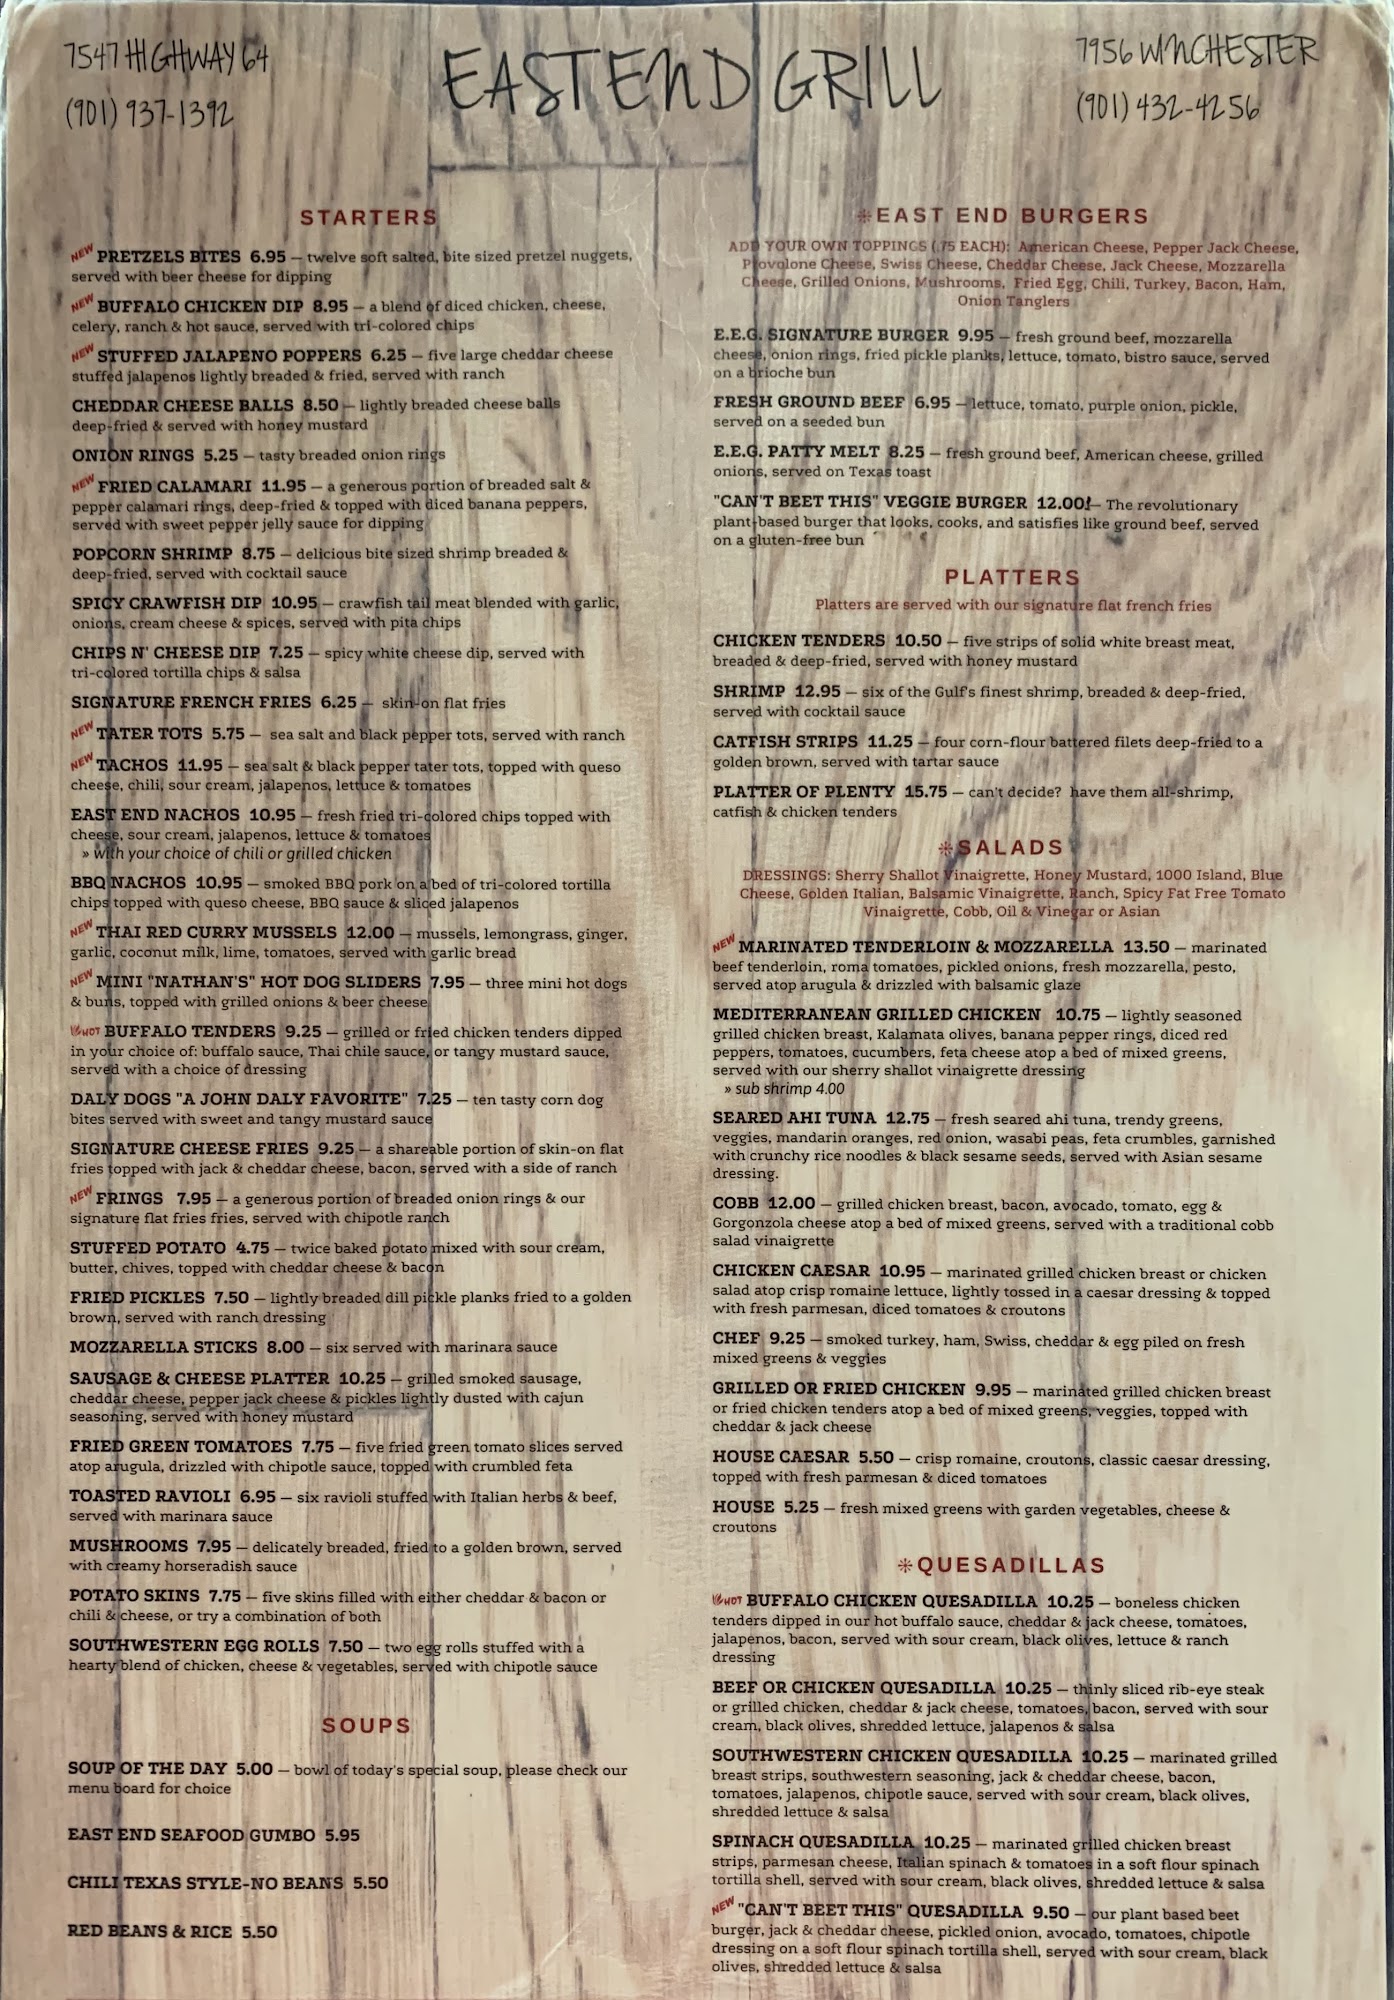 7547 HIGHWAY 64
(901) 937-1392
EAST END GRILL
7956 WINCHESTER
(901) 432-4256
STARTERS
NEW PRETZELS BITES 6.95 — twelve soft salted, bite sized pretzel nuggets,
served with beer cheese for dipping
NEW BUFFALO CHICKEN DIP 8.95 — a blend of diced chicken, cheese,
celery, ranch & hot sauce, served with tri-colored chips
NEW STUFFED JALAPENO POPPERS 6.25 — five large cheddar cheese
stuffed jalapenos lightly breaded & fried, served with ranch
CHEDDAR CHEESE BALLS 8.50 — lightly breaded cheese balls
deep-fried & served with honey mustard
ONION RINGS 5.25 — tasty breaded onion rings
NEW FRIED CALAMARI 11.95 — a generous portion of breaded salt &
pepper calamari rings, deep-fried & topped with diced banana peppers,
served with sweet pepper jelly sauce for dipping
POPCORN SHRIMP 8.75 — delicious bite sized shrimp breaded &
deep-fried, served with cocktail sauce
SPICY CRAWFISH DIP 10.95 — crawfish tail meat blended with garlic,
onions, cream cheese & spices, served with pita chips
CHIPS N' CHEESE DIP 7.25 — spicy white cheese dip, served with
tri-colored tortilla chips & salsa
SIGNATURE FRENCH FRIES 6.25 — skin-on flat fries
NEW TATER TOTS 5.75 — sea salt and black pepper tots, served with ranch
NEW TACHOS 11.95 — sea salt & black pepper tater tots, topped with queso
cheese, chili, sour cream, jalapenos, lettuce & tomatoes
EAST END NACHOS 10.95 — fresh fried tri-colored chips topped with
cheese, sour cream, jalapenos, lettuce & tomatoes
» with your choice of chili or grilled chicken
BBQ NACHOS 10.95 — smoked BBQ pork on a bed of tri-colored tortilla
chips topped with queso cheese, BBQ sauce & sliced jalapenos
NEW THAI RED CURRY MUSSELS 12.00 — mussels, lemongrass, ginger,
garlic, coconut milk, lime, tomatoes, served with garlic bread
NEW MINI "NATHAN'S" HOT DOG SLIDERS 7.95 — three mini hot dogs
& buns, topped with grilled onions & beer cheese
HOT BUFFALO TENDERS 9.25 — grilled or fried chicken tenders dipped
in your choice of: buffalo sauce, Thai chile sauce, or tangy mustard sauce,
served with a choice of dressing
DALY DOGS "A JOHN DALY FAVORITE" 7.25 — ten tasty corn dog
bites served with sweet and tangy mustard sauce
SIGNATURE CHEESE FRIES 9.25 — a shareable portion of skin-on flat
fries topped with jack & cheddar cheese, bacon, served with a side of ranch
NEW FRINGS 7.95 — a generous portion of breaded onion rings & our
signature flat fries fries, served with chipotle ranch
STUFFED POTATO 4.75 — twice baked potato mixed with sour cream,
butter, chives, topped with cheddar cheese & bacon
FRIED PICKLES 7.50 — lightly breaded dill pickle planks fried to a golden
brown, served with ranch dressing
MOZZARELLA STICKS 8.00 — six served with marinara sauce
SAUSAGE & CHEESE PLATTER 10.25 — grilled smoked sausage,
cheddar cheese, pepper jack cheese & pickles lightly dusted with cajun
seasoning, served with honey mustard
FRIED GREEN TOMATOES 7.75 — five fried green tomato slices served
atop arugula, drizzled with chipotle sauce, topped with crumbled feta
TOASTED RAVIOLI 6.95 — six ravioli stuffed with Italian herbs & beef,
served with marinara sauce
MUSHROOMS 7.95 — delicately breaded, fried to a golden brown, served
with creamy horseradish sauce
POTATO SKINS 7.75 — five skins filled with either cheddar & bacon or
chili & cheese, or try a combination of both
SOUTHWESTERN EGG ROLLS 7.50 — two egg rolls stuffed with a
hearty blend of chicken, cheese & vegetables, served with chipotle sauce
SOUPS
SOUP OF THE DAY 5.00 — bowl of today's special soup, please check our
menu board for choice
EAST END SEAFOOD GUMBO 5.95
CHILI TEXAS STYLE-NO BEANS 5.50
RED BEANS & RICE 5.50
✳EAST END BURGERS
ADD YOUR OWN TOPPINGS (.75 EACH): American Cheese, Pepper Jack Cheese,
Provolone Cheese, Swiss Cheese, Cheddar Cheese, Jack Cheese, Mozzarella
Cheese, Grilled Onions, Mushrooms, Fried Egg, Chili, Turkey, Bacon, Ham,
Onion Tanglers
E.E.G. SIGNATURE BURGER 9.95 — fresh ground beef, mozzarella
cheese, onion rings, fried pickle planks, lettuce, tomato, bistro sauce, served
on a brioche bun
FRESH GROUND BEEF 6.95 — lettuce, tomato, purple onion, pickle,
served on a seeded bun
E.E.G. PATTY MELT 8.25 — fresh ground beef, American cheese, grilled
onions, served on Texas toast
"CAN'T BEET THIS" VEGGIE BURGER 12.00 — The revolutionary
plant-based burger that looks, cooks, and satisfies like ground beef, served
on a gluten-free bun
PLATTERS
Platters are served with our signature flat french fries
CHICKEN TENDERS 10.50 — five strips of solid white breast meat,
breaded & deep-fried, served with honey mustard
SHRIMP 12.95 — six of the Gulf's finest shrimp, breaded & deep-fried,
served with cocktail sauce
CATFISH STRIPS 11.25 — four corn-flour battered filets deep-fried to a
golden brown, served with tartar sauce
PLATTER OF PLENTY 15.75 — can't decide? have them all-shrimp,
catfish & chicken tenders
✳SALADS
DRESSINGS: Sherry Shallot Vinaigrette, Honey Mustard, 1000 Island, Blue
Cheese, Golden Italian, Balsamic Vinaigrette, Ranch, Spicy Fat Free Tomato
Vinaigrette, Cobb, Oil & Vinegar or Asian
NEW MARINATED TENDERLOIN & MOZZARELLA 13.50 — marinated
beef tenderloin, roma tomatoes, pickled onions, fresh mozzarella, pesto,
served atop arugula & drizzled with balsamic glaze
MEDITERRANEAN GRILLED CHICKEN 10.75 — lightly seasoned
grilled chicken breast, Kalamata olives, banana pepper rings, diced red
peppers, tomatoes, cucumbers, feta cheese atop a bed of mixed greens,
served with our sherry shallot vinaigrette dressing
» sub shrimp 4.00
SEARED AHI TUNA 12.75 — fresh seared ahi tuna, trendy greens,
veggies, mandarin oranges, red onion, wasabi peas, feta crumbles, garnished
with crunchy rice noodles & black sesame seeds, served with Asian sesame
dressing.
COBB 12.00 — grilled chicken breast, bacon, avocado, tomato, egg &
Gorgonzola cheese atop a bed of mixed greens, served with a traditional cobb
salad vinaigrette
CHICKEN CAESAR 10.95 — marinated grilled chicken breast or chicken
salad atop crisp romaine lettuce, lightly tossed in a caesar dressing & topped
with fresh parmesan, diced tomatoes & croutons
CHEF 9.25 — smoked turkey, ham, Swiss, cheddar & egg piled on fresh
mixed greens & veggies
GRILLED OR FRIED CHICKEN 9.95 — marinated grilled chicken breast
or fried chicken tenders atop a bed of mixed greens, veggies, topped with
cheddar & jack cheese
HOUSE CAESAR 5.50 — crisp romaine, croutons, classic caesar dressing,
topped with fresh parmesan & diced tomatoes
HOUSE 5.25 — fresh mixed greens with garden vegetables, cheese &
croutons
✳QUESADILLAS
HOT BUFFALO CHICKEN QUESADILLA 10.25 — boneless chicken
tenders dipped in our hot buffalo sauce, cheddar & jack cheese, tomatoes,
jalapenos, bacon, served with sour cream, black olives, lettuce & ranch
dressing
BEEF OR CHICKEN QUESADILLA 10.25 — thinly sliced rib-eye steak
or grilled chicken, cheddar & jack cheese, tomatoes, bacon, served with sour
cream, black olives, shredded lettuce, jalapenos & salsa
SOUTHWESTERN CHICKEN QUESADILLA 10.25 — marinated grilled
breast strips, southwestern seasoning, jack & cheddar cheese, bacon,
tomatoes, jalapenos, chipotle sauce, served with sour cream, black olives,
shredded lettuce & salsa
SPINACH QUESADILLA 10.25 — marinated grilled chicken breast
strips, parmesan cheese, Italian spinach & tomatoes in a soft flour spinach
tortilla shell, served with sour cream, black olives, shredded lettuce & salsa
NEW "CAN'T BEET THIS" QUESADILLA 9.50 — our plant based beet
burger, jack & cheddar cheese, pickled onion, avocado, tomatoes, chipotle
dressing on a soft flour spinach tortilla shell, served with sour cream, black
olives, shredded lettuce & salsa